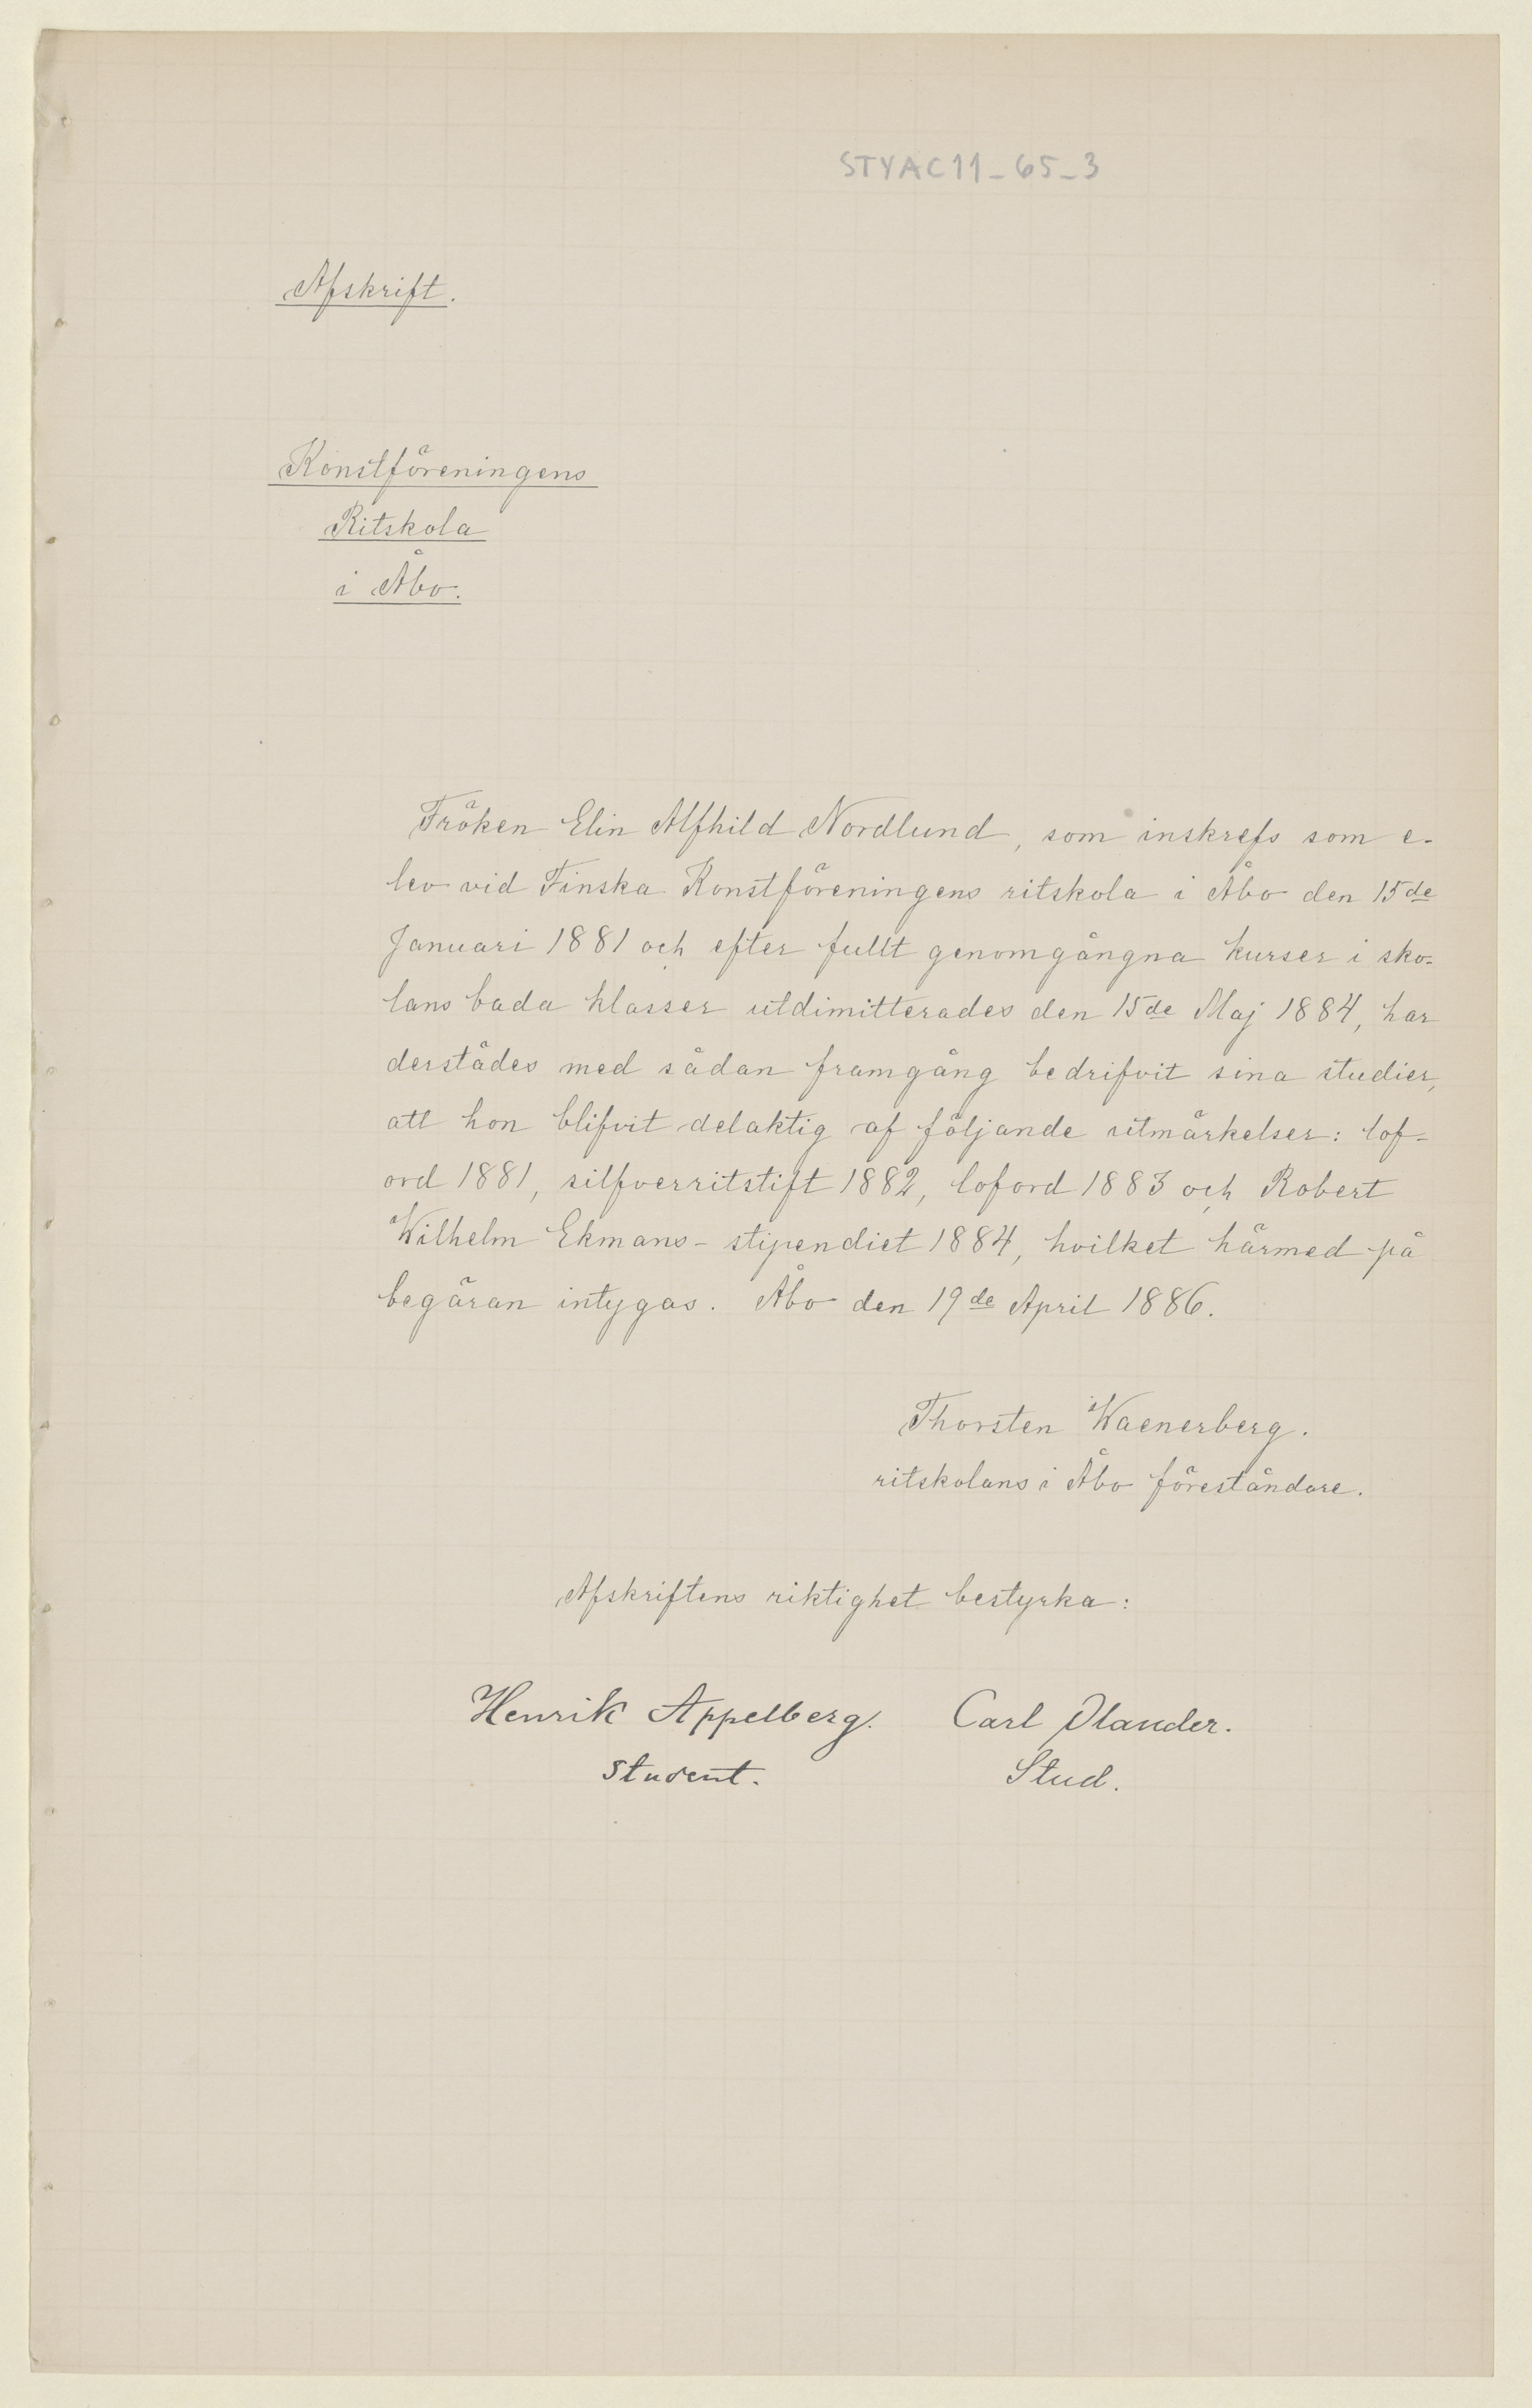 STYAC11_65_3
Afskrift.
Konstföreningens
Ritskola
i Åbo.
Fröken Elin Alfhild Nordlund, som inskrefs som e-
lev vid Finska Konstföreningens ritskola i Åbo den 15de
Januari 1881 och efter fullt genomgångna kurser i sko-
lans bada klasser utdimitterades den 15de Maj 1884, har
derstädes med sådan framgång bedrifvit sina studier,
att hon blifvit delaktig af följande utmärkelser: lof-
ord 1881, silfverritstift 1882, loford 1883 och Robert
Wilhelm Ekmans-stipendiet 1884, hvilket härmed på
begäran intygas. Åbo den 19de April 1886.
Thorsten Waenerberg.
ritskolans i Åbo föreståndare.
Afskriftens riktighet bestyrka:
Henrik Appelberg. Carl Olander.
Student. Stud.